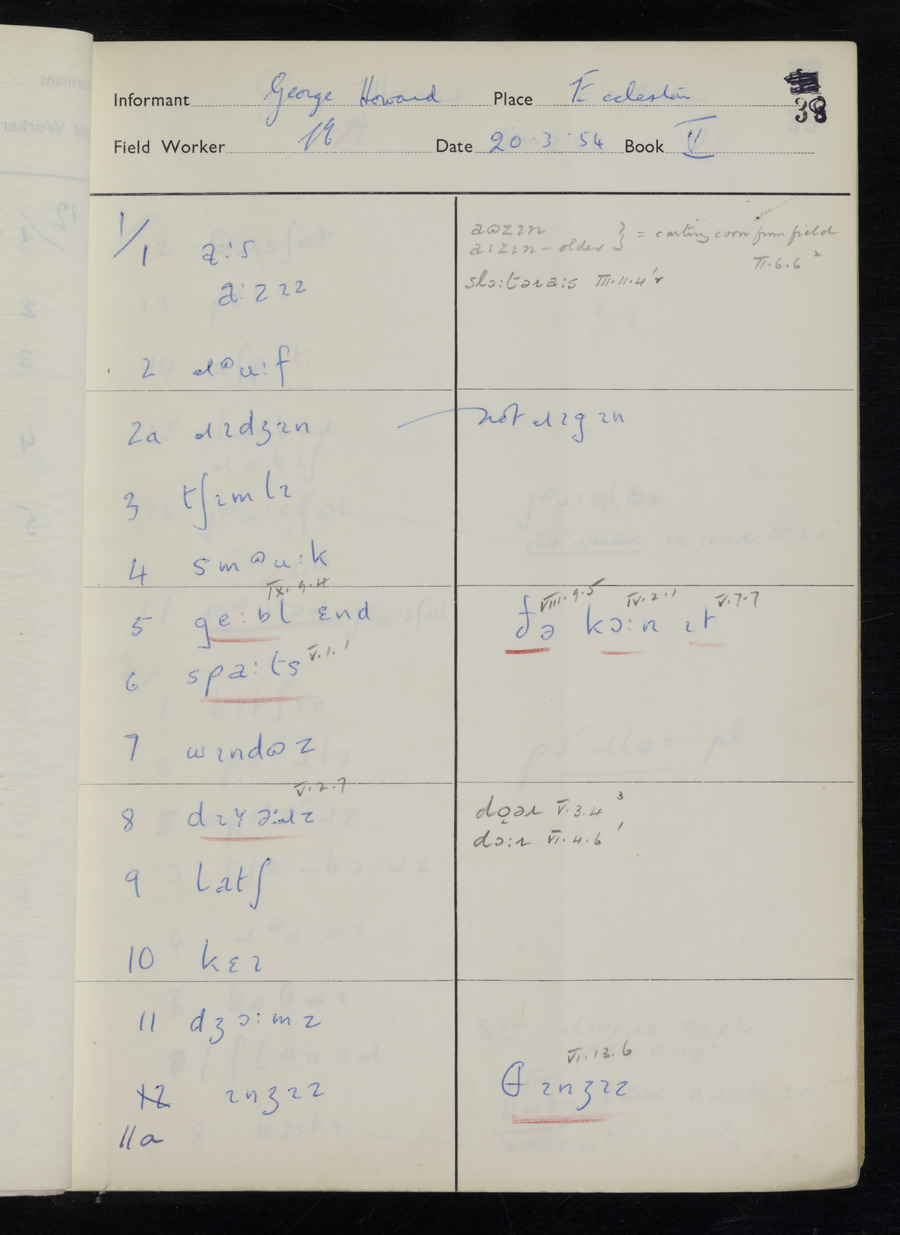 Informant George Howard Place Eccleston
38
Field Worker Date 20·3·54 Book V
1/1 aːs
aːzɪz
2 ɹᶷuːf
2a ɹɪdʒɪn
3 tʃɪmlɪ
4 smᶷuːk
IX.9.4
5 geːbl ɛnd
6 spaːts V.1.1
7 wɪndʊz
V.2.7
8 dɪɣɔːɹz
9 latʃ
10 kɛɪ
11 dʒɔːmz
12 ɪnʒɪz
11a
aʊzɪn
aːzɪn - older } = carting corn from field
VI.6.6 2
slɔːtəɹaːs III.11.4 'r
not ɹɪgɪn
VIII.9.5 IV.2.1 V.7.7
ðə kɔːn ɪt
V.3.4 3
dɔːɹ VI.4.6 1
VI.13.6
ɪnʒɪz